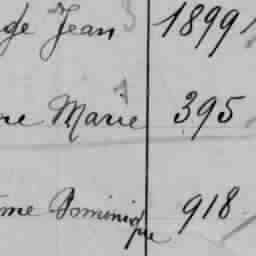 de Jean 1899
ne Marie 395
me Dominique 918